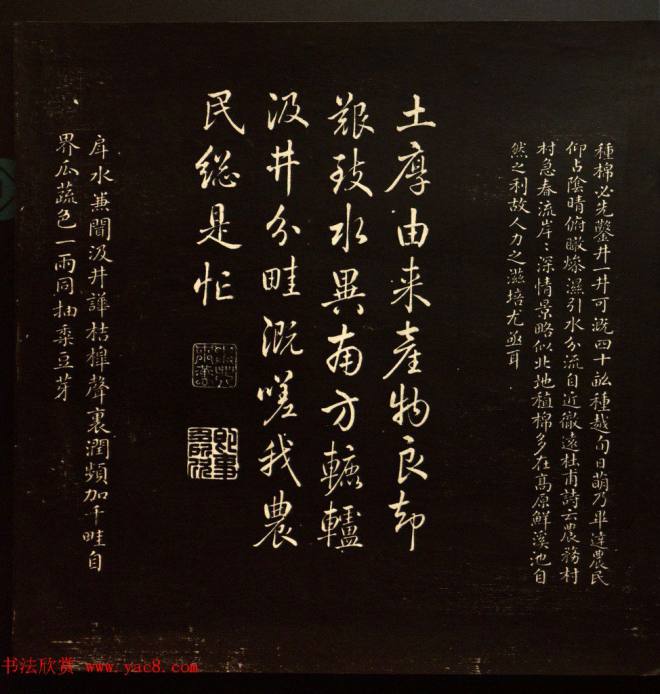 種棉必先鑿井一井可溉四十畝種越旬日萌乃畢達農民
仰占陰晴俯瞰燥濕引水分流自近徹遠杜甫詩云農務村
村急春流岸〻深情景略似北地植棉多在高原鮮溪池自
然之利故人力之滋培尤亟耳
土厚由来產物良却
艱致水異南方轆轤
汲井分畦溉嗟我農
民總是忙
戽水無聞汲井譁桔橰聲裏潤頻加千畦自
界瓜蔬色一雨同抽黍豆芽
书法欣赏 www.yac8.com